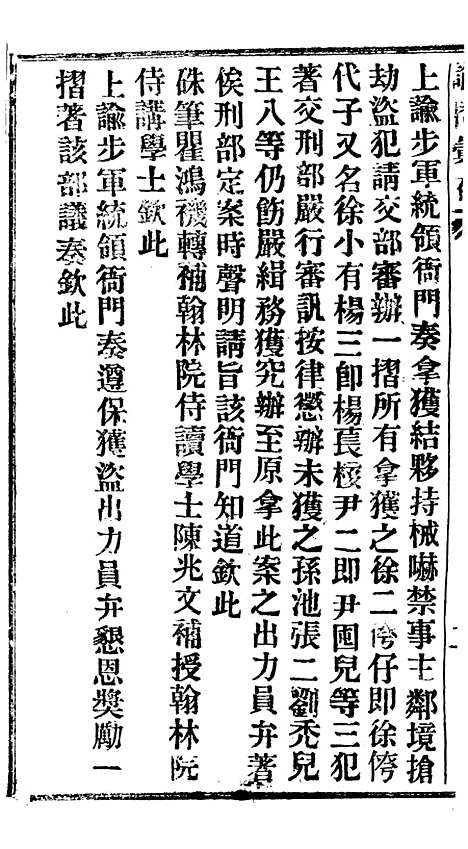 上諭步軍統領衙門奏拿獲結夥持械嚇禁事主鄰境搶
劫盜犯請交部審辦一摺所有拿獲之徐二侉仔即徐侉
代子又名徐小有楊三卽楊長 尹二即尹囤兒等三犯
著交刑部嚴行審訊按律懲辦未獲之孫池張二劉禿兒
王八等仍飭嚴緝務獲究辦至原拿此案之出力員弁著
俟刑部定案時聲明請旨該衙門知道欽此
硃筆瞿鴻禨轉補翰林院侍讀學士陳兆文補授翰林院
侍講學士欽此
上諭步軍統領衙門奏遵保獲盜出力員弁懇恩獎勵一
摺著該部議奏欽此